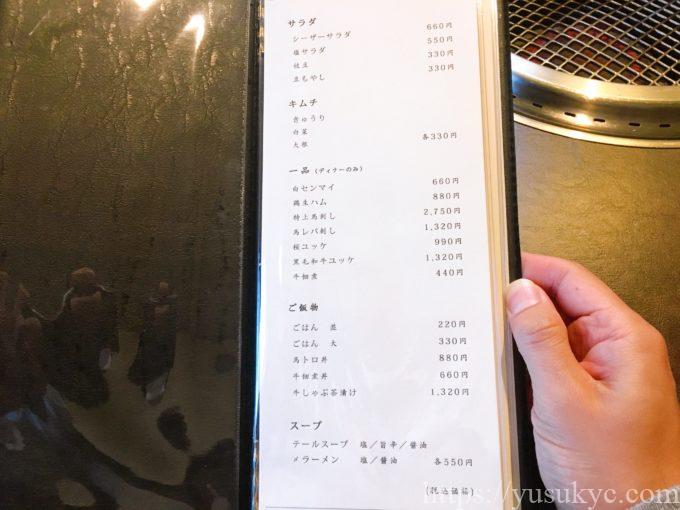 サラダ
シーザーサラダ 660円
塩サラダ 550円
枝豆 330円
豆もやし 330円
キムチ
きゅうり
白菜
大根 各330円
一品 (ディナーのみ)
白センマイ 660円
鶏生ハム 880円
特上馬刺し 2,750円
馬レバ刺し 1,320円
桜ユッケ 990円
黒毛和牛ユッケ 1,320円
牛佃煮 440円
ご飯物
ごはん 並 220円
ごはん 大 330円
馬トロ丼 880円
牛佃煮丼 660円
牛しゃぶ茶漬け 1,320円
スープ
テールスープ 塩／旨辛／醤油
メラーメン 塩／醤油 各550円
(税込価格)
https://yusukyc.com